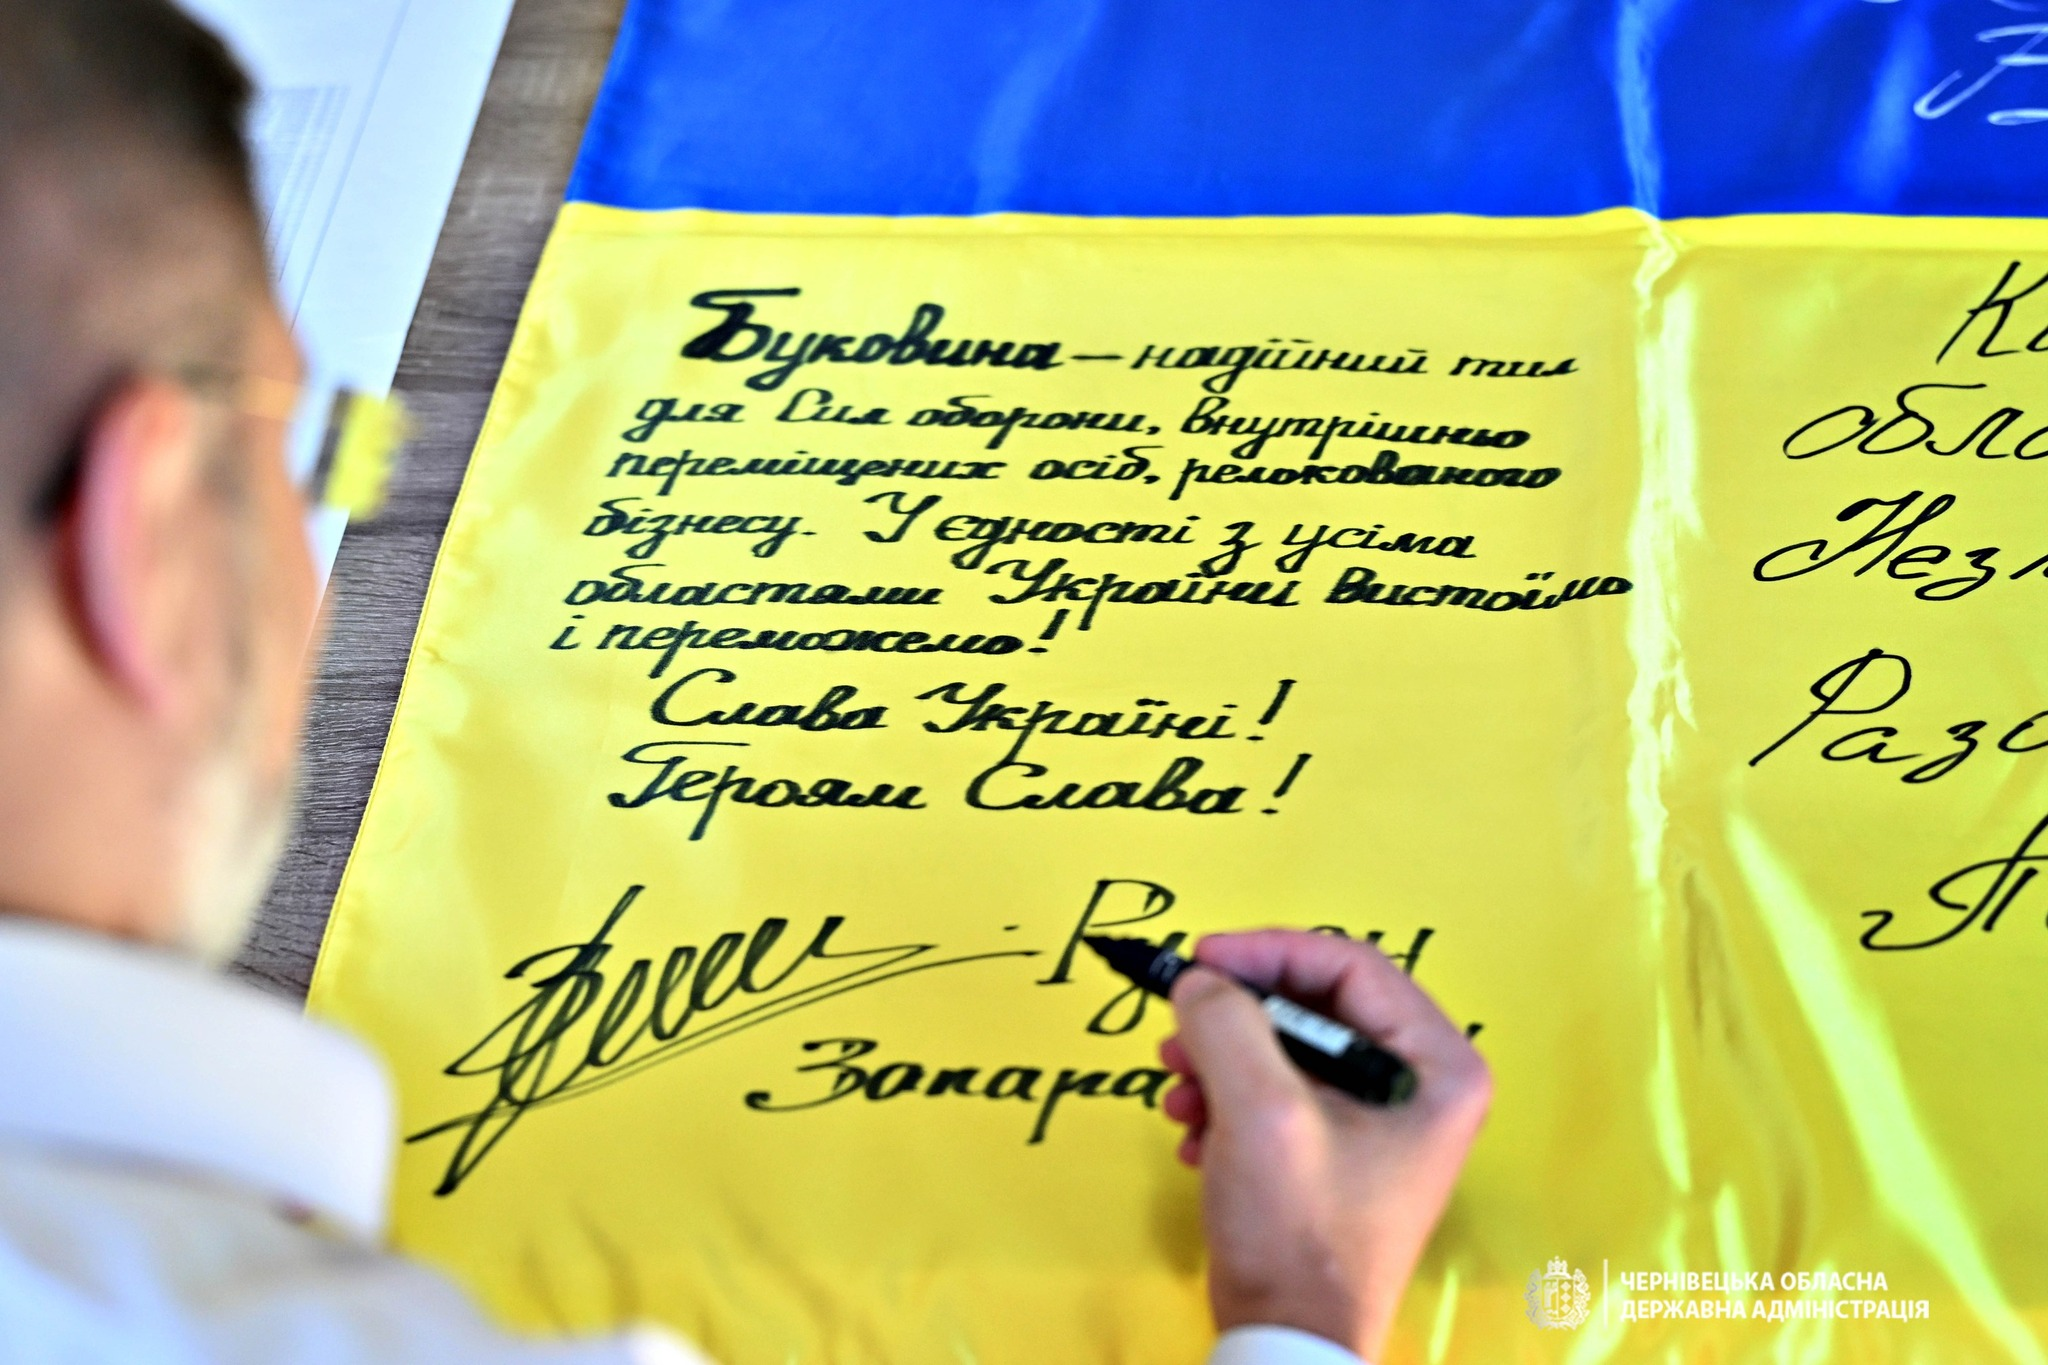 Буковина – надійний тил
для Сил оборони, внутрішньо
переміщених осіб, релокованого
бізнесу. У єдності з усіма
областями України вистоїмо
і переможемо!
Слава Україні!
Героям Слава!
ЧЕРНІВЕЦЬКА ОБЛАСНА
ДЕРЖАВНА АДМІНІСТРАЦІЯ